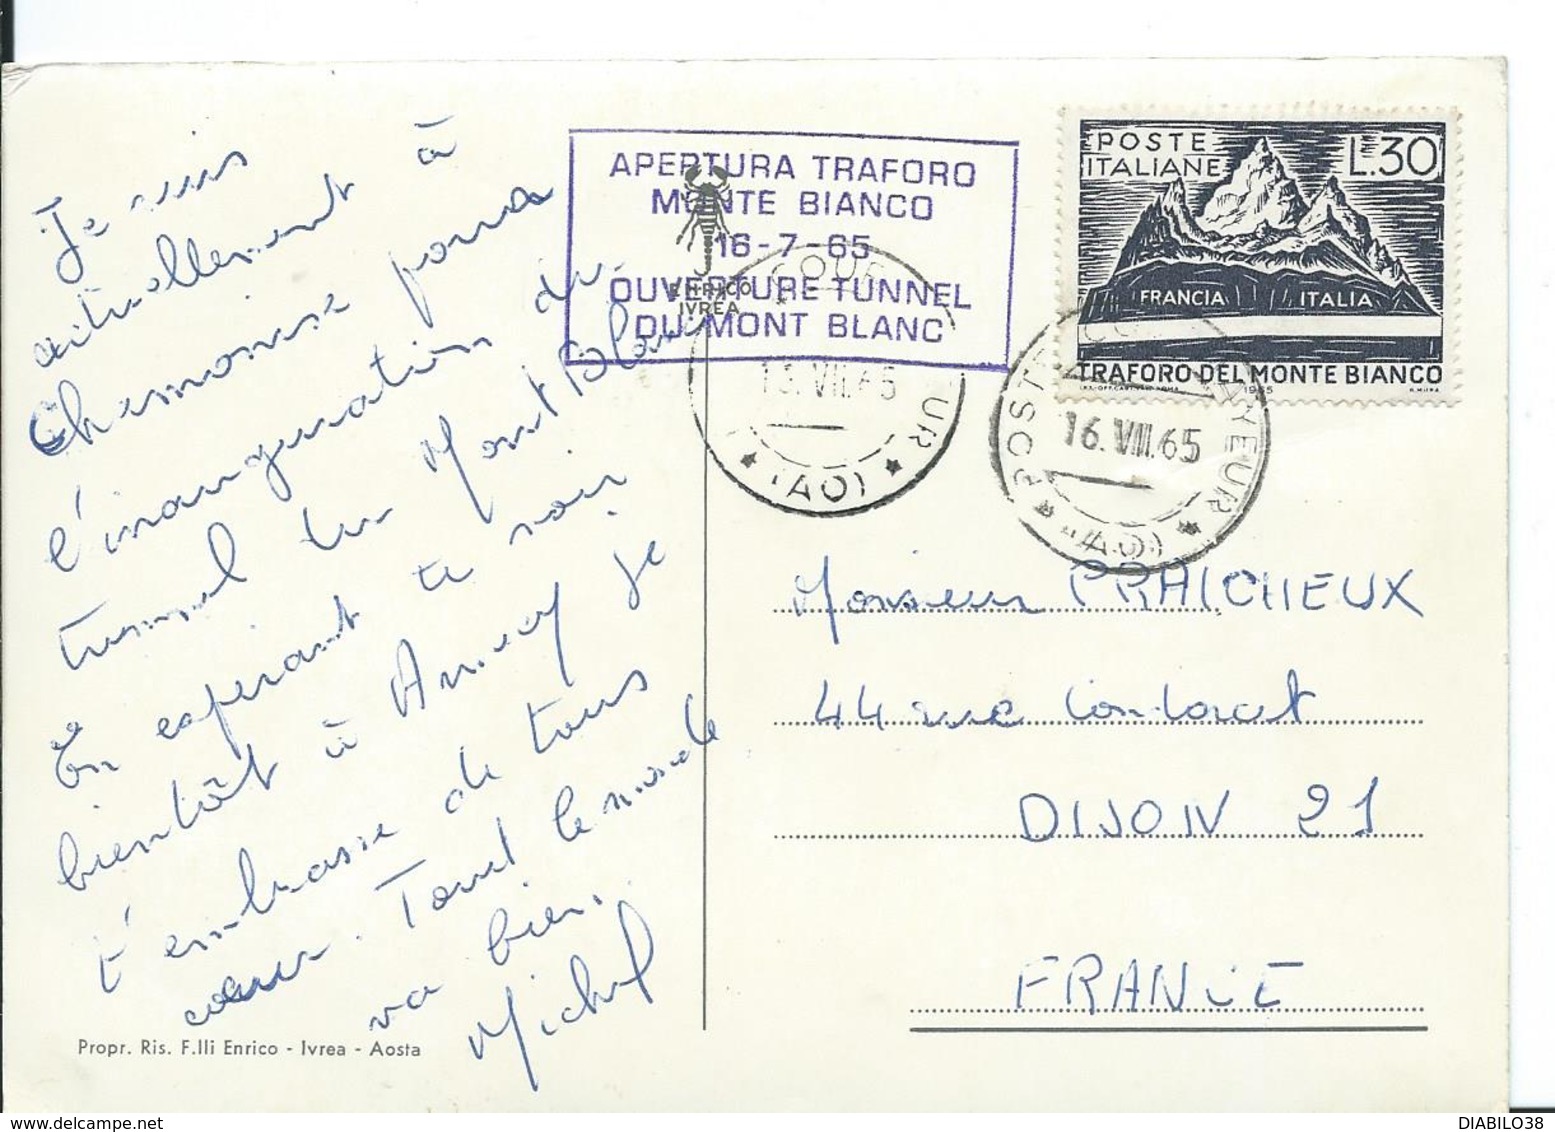 Je suis
actuellement à
Chamonix pour
l'inauguration du
tunnel du Mont Blanc
En esperant te voir
bientôt à Annecy je
t'embrasse de tous
coeur. Tout le monde
va bien.
Michel
Propr. Ris. F.lli Enrico - Ivrea - Aosta
APERTURA TRAFORO
MONTE BIANCO
16-7-65
OUVERTURE TUNNEL
DU MONT BLANC
ENRICO
IVREA
13.VII.65
(AO)
POSTE ITALIANE
L.30
FRANCIA ITALIA
TRAFORO DEL MONTE BIANCO
1965
16.VII.65
(AO)
Monsieur PRAICHEUX
44 rue
DIJON 21
FRANCE
DIABILO38